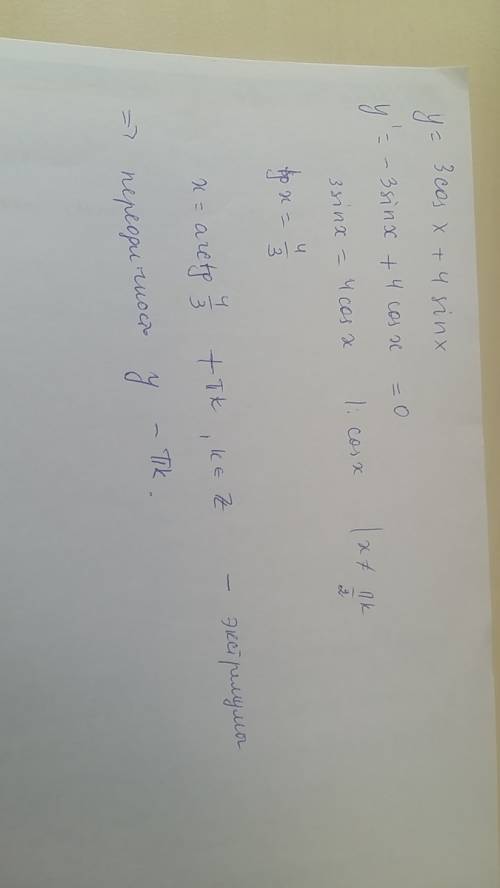 y = 3cos x + 4 sin x
y' = - 3 sin x + 4 cos x = 0
3 sin x = 4 cos x |: cos x | x ≠ пк/2
tg x = 4/3
x = arctg 4/3 + πk, k ∈ Z - экстремумы
=> переодичность y - πk.